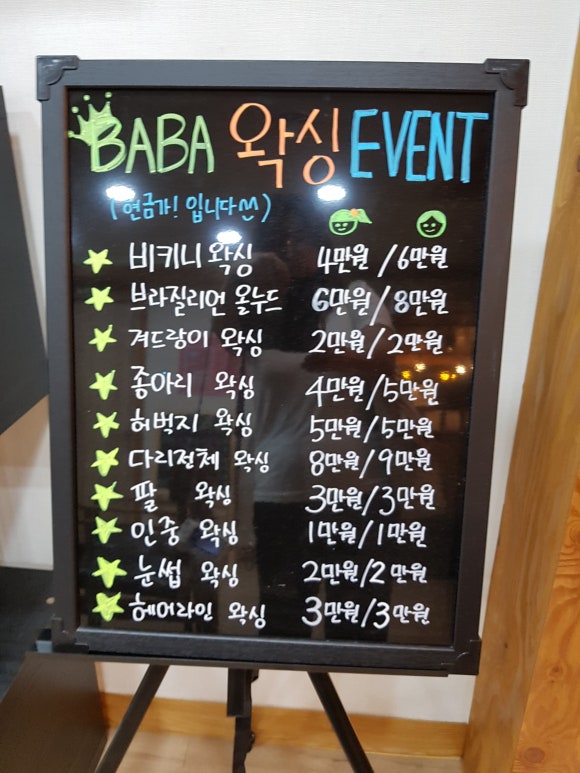 BABA 왁싱 EVENT
(현금가! 입니다^^)
비키니 왁싱 4만원 / 6만원
브라질리언 올누드 6만원 / 8만원
겨드랑이 왁싱 2만원 / 2만원
종아리 왁싱 4만원 / 5만원
허벅지 왁싱 5만원 / 5만원
다리전체 왁싱 8만원 / 9만원
팔 왁싱 3만원 / 3만원
인중 왁싱 1만원 / 1만원
눈썹 왁싱 2만원 / 2만원
헤어라인 왁싱 3만원 / 3만원